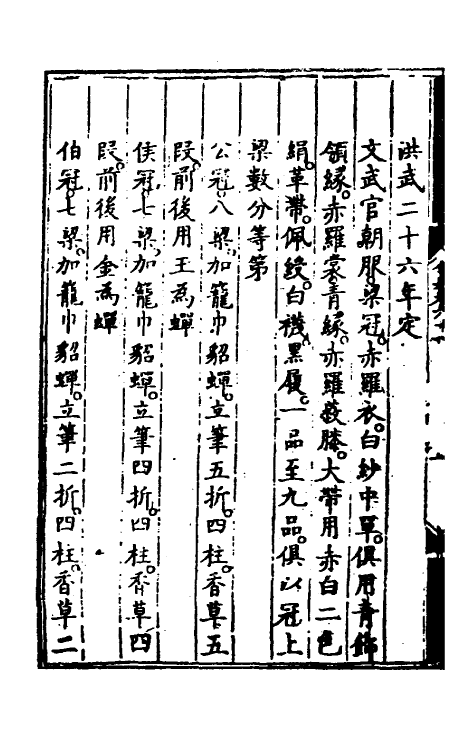 洪武二十六年定
文武官朝服梁冠。赤羅衣。白紗中單。俱用青飾
領緣。赤羅裳青緣。赤羅蔽膝。大帶用赤白二色
絹。革帶。佩綬。白襪黑履。一品至九品。俱以冠上
梁數分等第
公冠。八梁。加籠巾貂蟬。立筆五折。四柱。香草五
段。前後用玉為蟬
侯冠。七梁。加籠巾貂蟬。立筆四折。四柱。香草四
段。前後用金為蟬
伯冠。七梁。加籠巾貂蟬。立筆二折。四柱。香草二